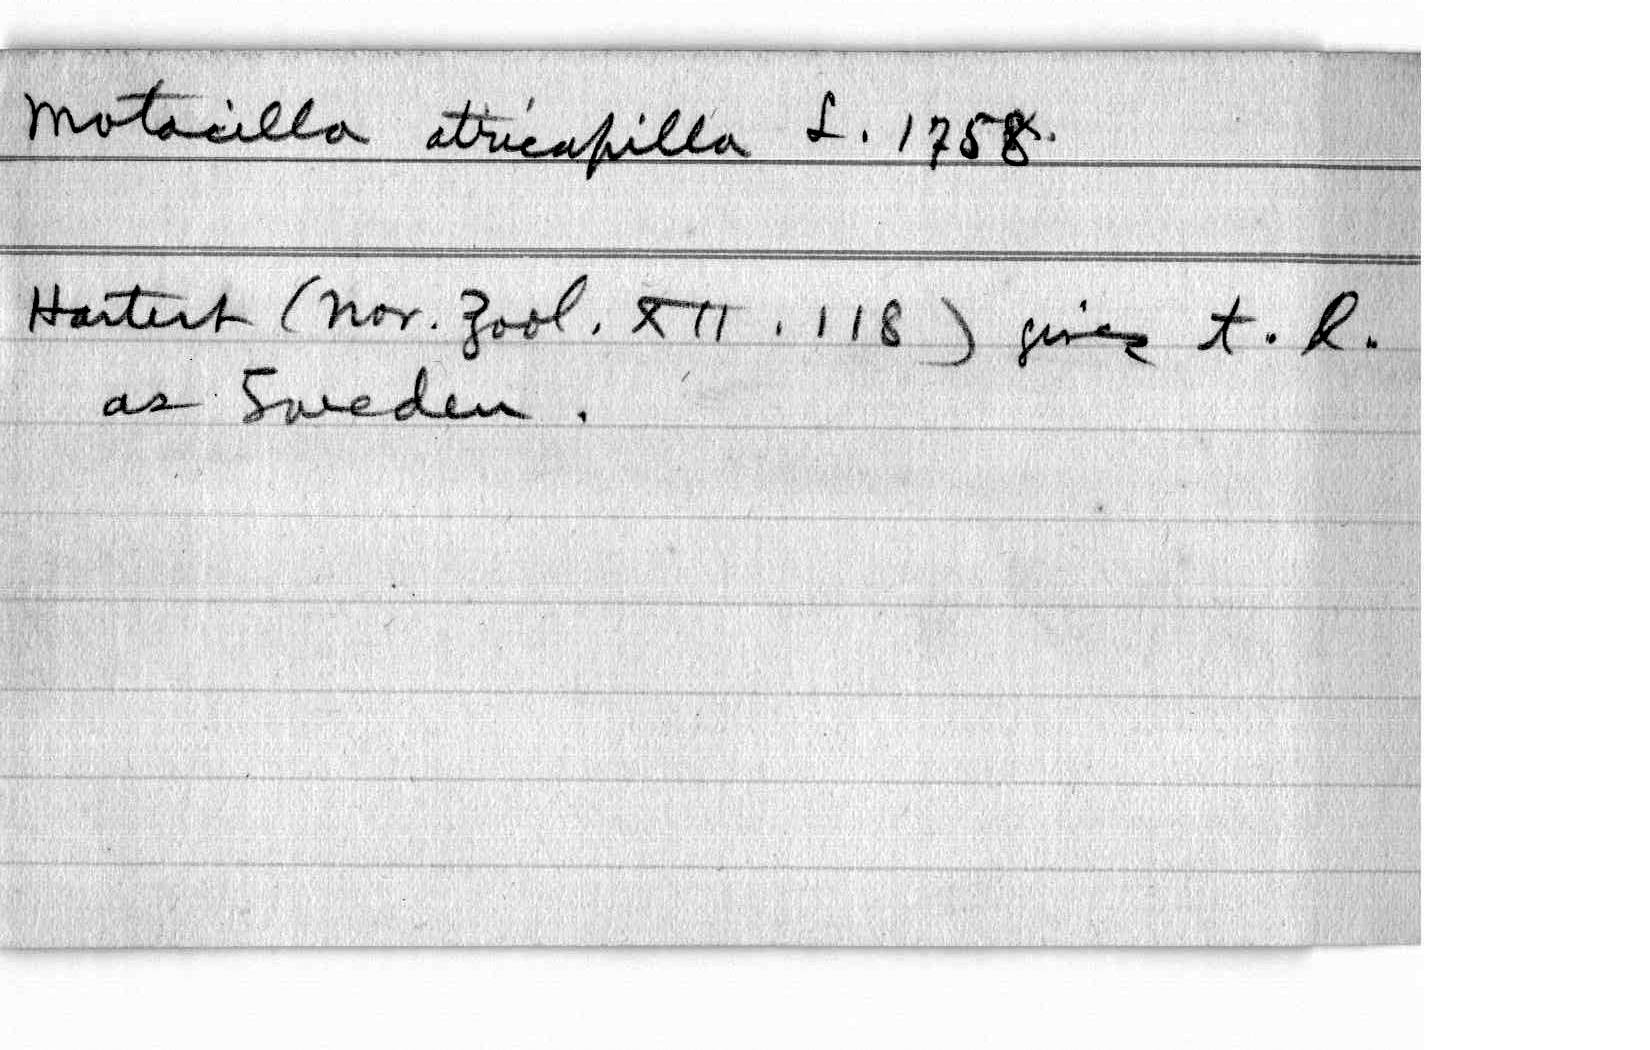 Motacilla atricapilla L. 1758.
Hartert (Nov. Zool. XII. 118) gives t. l.
as Sweden.